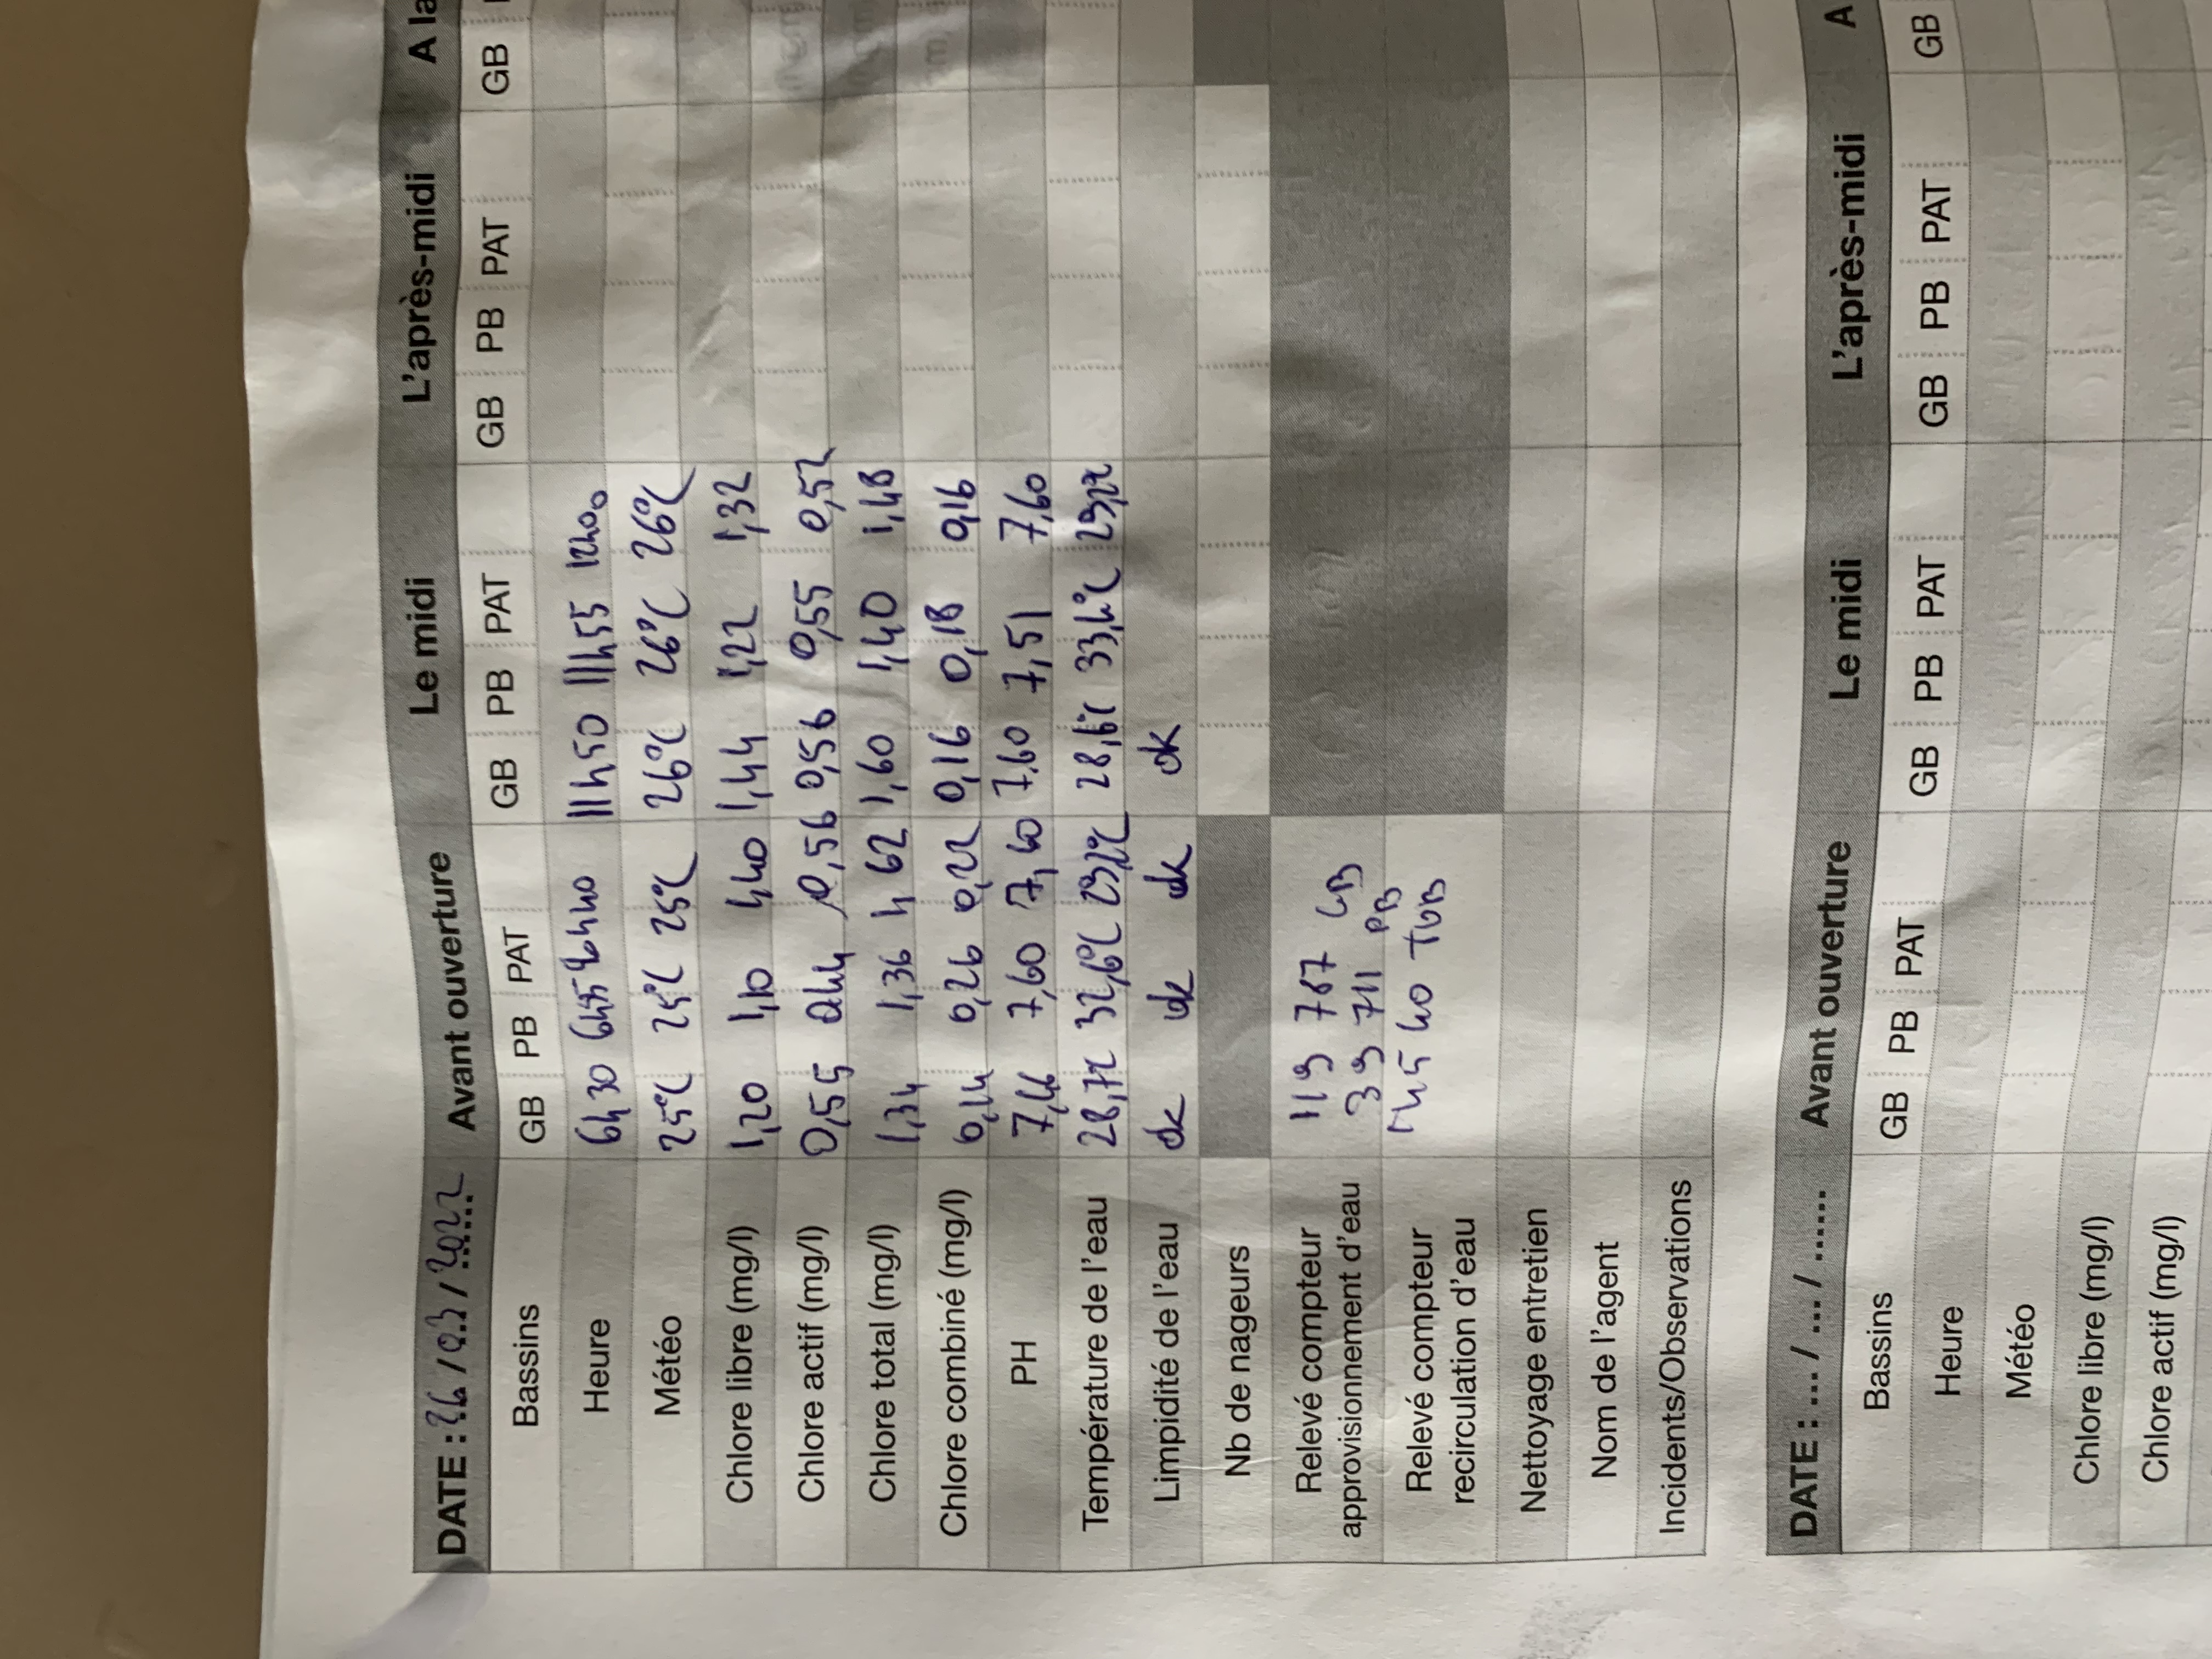 DATE : 26 / 03 / 2022 Avant ouverture Le midi L'après-midi A la
Bassins GB PB PAT GB PB PAT GB PB PAT GB
Heure 6h30 6h35 6h40 11h50 11h55 12h00
Météo 25°C 25°C 25°C 26°C 26°C 26°C
Chlore libre (mg/l) 1,20 1,10 1,40 1,44 1,22 1,32
Chlore actif (mg/l) 0,55 0,44 0,56 0,56 0,55 0,52
Chlore total (mg/l) 1,34 1,36 1,62 1,60 1,40 1,48
Chlore combiné (mg/l) 0,14 0,26 0,22 0,16 0,18 0,16
PH 7,46 7,60 7,60 7,60 7,51 7,60
Température de l'eau 28,7°C 32,6°C 29,2°C 28,6°C 33,4°C 29,2°C
Limpidité de l'eau ok ok ok ok
Nb de nageurs
Relevé compteur 119 787 GB
approvisionnement d'eau 39 711 PB
Relevé compteur 40 TOB
recirculation d'eau
Nettoyage entretien
Nom de l'agent
Incidents/Observations
DATE : ... / ... / ...... Avant ouverture Le midi L'après-midi A
Bassins GB PB PAT GB PB PAT GB PB PAT GB
Heure
Météo
Chlore libre (mg/l)
Chlore actif (mg/l)